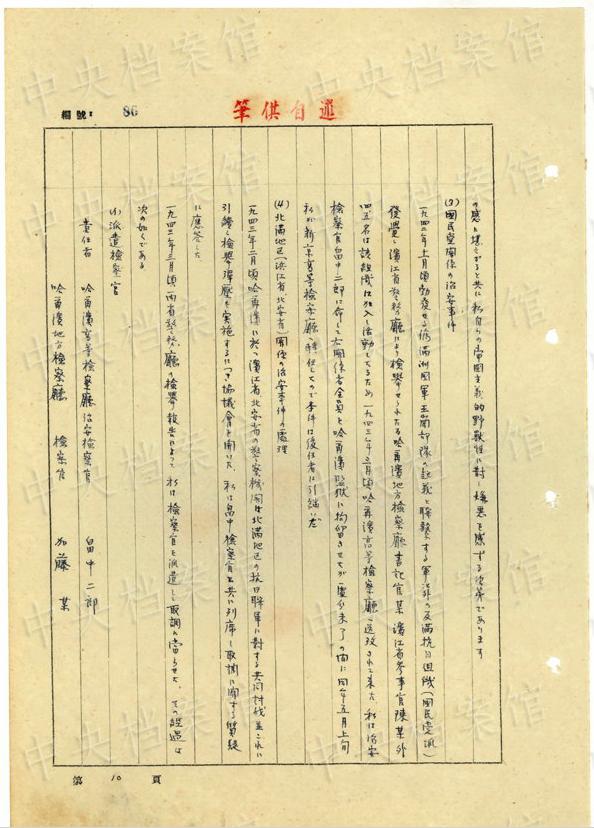 筆供自述
編號: 86
の感に堪えざると共に私自らの帝国主義的野獣性に対し憎悪を感ずる次第であります
(3)国民党関係の治安事件
一九四二年十一月頃勃発せる偽満洲国軍五箇部隊の起義と聯繋する軍以外の反満抗日組織(国民党派)
発覚し濱江省警務廳により検挙せられたる哈爾濱地方検察廳書記官某、濱江省参事官陳某外
四五名は該組織に加入し活動してるため一九四三年三月頃哈爾濱高等検察廳へ送致されて来た 私は治安
検察官畠中二郎に命じて右関係者全員を哈爾濱監獄に拘留させたが処分未了の間に同年五月上旬
私が新京高等検察廳へ転任したので本件は後任者に引継いだ
(4)北満地区(濱江省、北安省)関係の治安事件の処理
一九四三年二月頃哈爾濱に於て濱江省、北安省の警察機関は北満地区の抗日聯軍に対する共同討伐並これに
引続く検挙弾圧を実施するにつき協議会を開いた、私は畠中検察官と共に列席し取調に関する質疑
に應答した
一九四三年三月頃両省警務廳の検挙報告によって私は検察官を派遣して取調に當らせた、その経過は
次の如くである
(イ)派遣検察官
責任者 哈爾濱高等検察廳治安検察官 畠中二郎
哈爾濱地方検察廳 検察官 加藤某
第 10 頁
中央档案馆